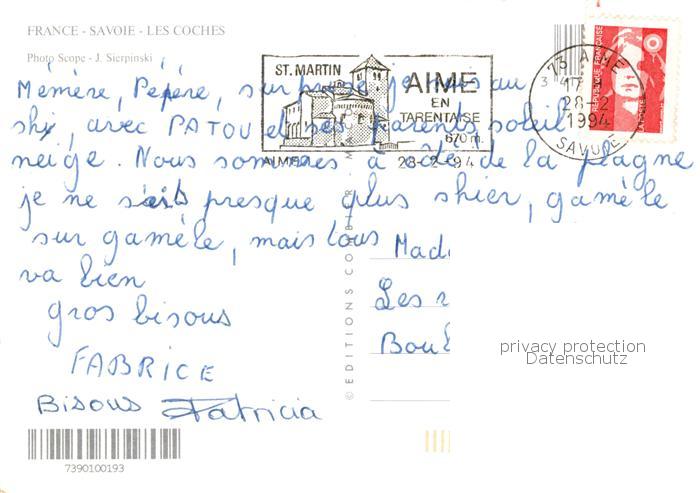 FRANCE - SAVOIE - LES COCHES
Photo Scope - J. Sierpinski
ST. MARTIN
AIME
EN
TARENTAISE
670 m.
AIME
28-2-94
73 AIME
17 H
28-2
1994
SAVOIE
RÉPUBLIQUE FRANÇAISE
Mémère, Pépére, surprise je suis au
shy, avec PATOU et ses parents, soleil
neige. Nous sommes à côté de la plagne
je ne sais presque plus shier, gamèle
sur gamèle, mais tous
va bien
gros bisous
FABRICE
Bisous Patricia
Mad
Les
Bou
privacy protection
Datenschutz
© EDITIONS
7390100193